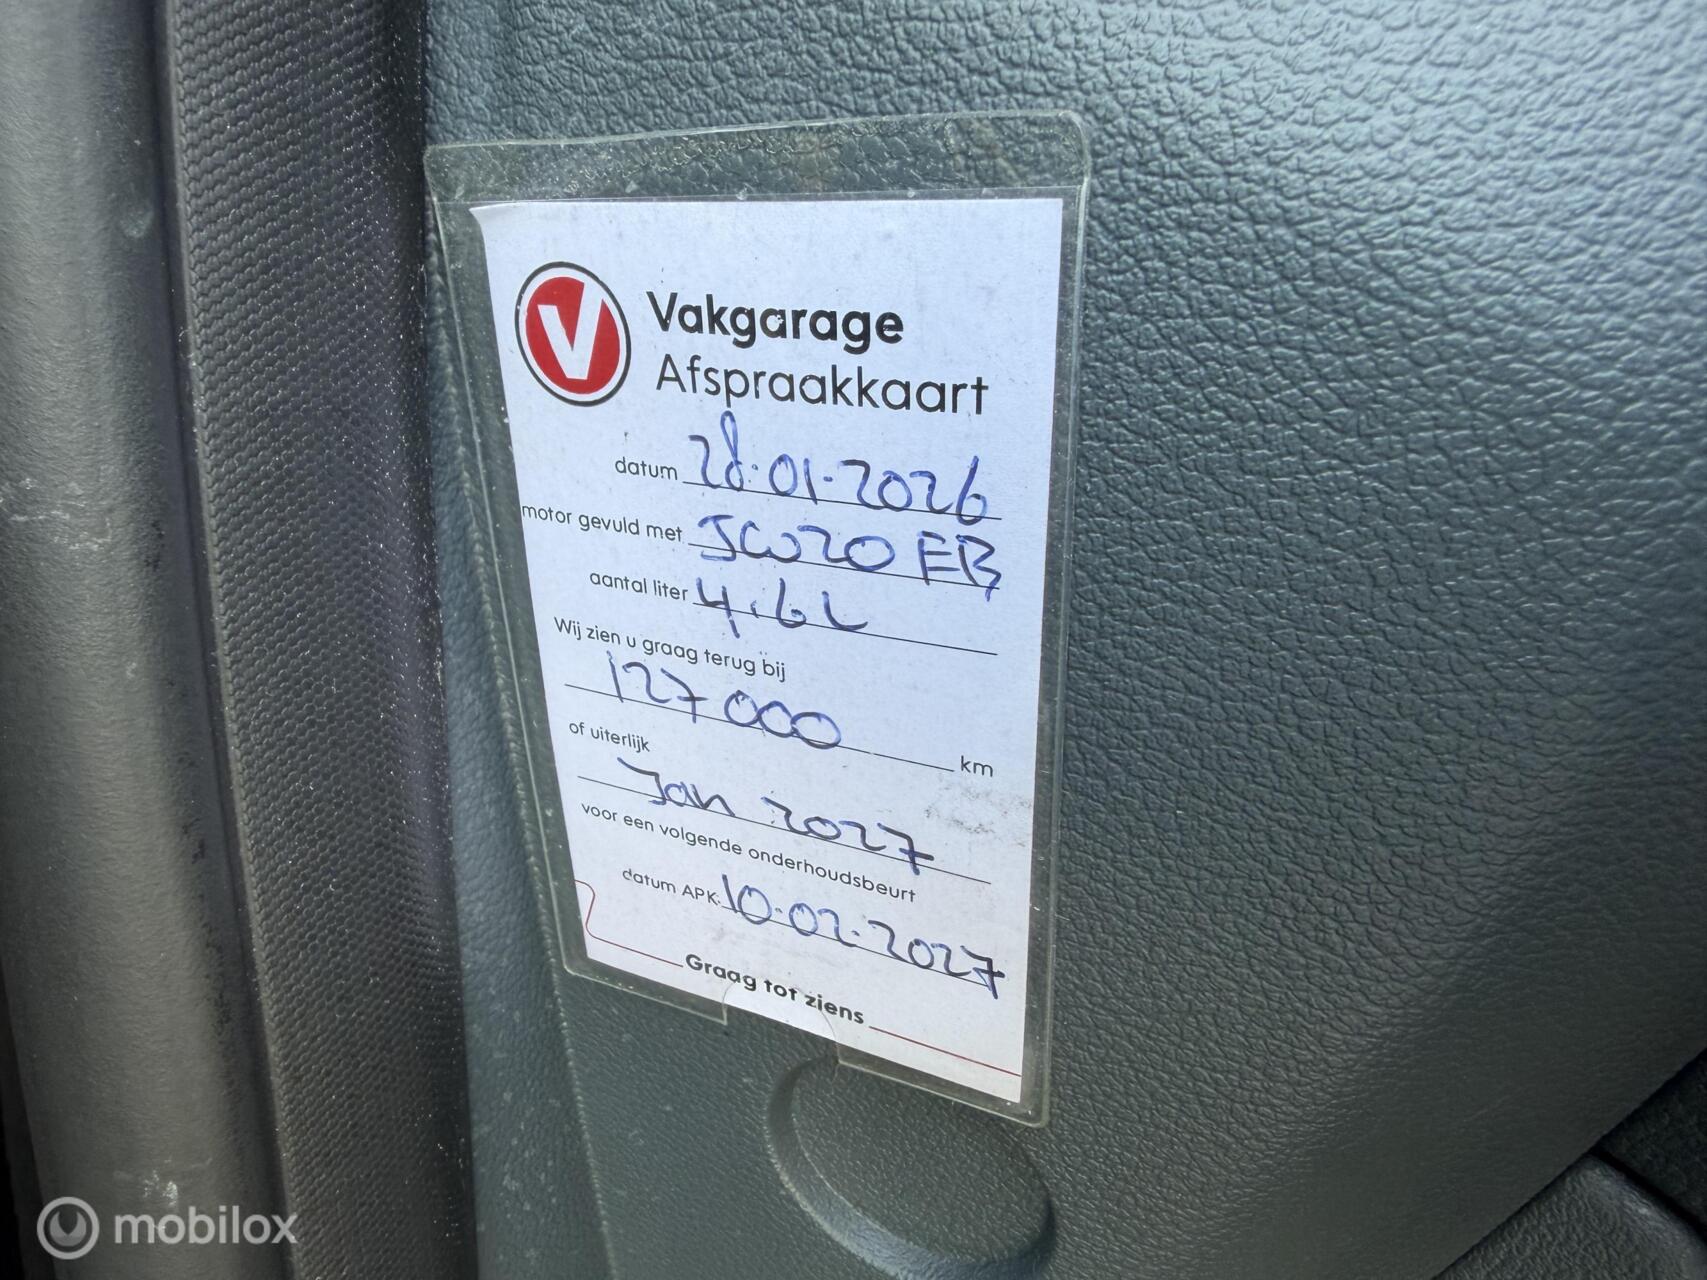 V
Vakgarage
Afspraakkaart
datum 28-01-2026
motor gevuld met 5W20 FB
aantal liter 4,6L
Wij zien u graag terug bij
127000 km
of uiterlijk
Jan 2027
voor een volgende onderhoudsbeurt
datum APK: 10-02-2027
Graag tot ziens
mobilox